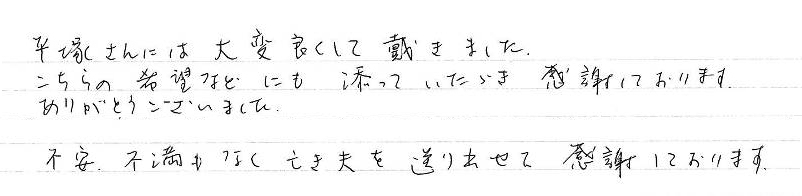 平塚さんには大変良くして戴きました.
こちらの希望などにも添っていただき感謝しております.
ありがとうございました.
不安.不満もなく亡き夫を送り出せて感謝しております.